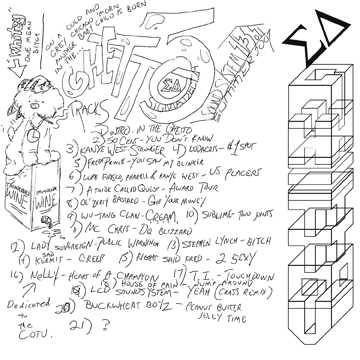 Winter
ONE MEAN
BITCH
ON A COLD AND
GREY CHICAGO MORN
ANOTHER BABY CHILD IS BORN
IN THE
GHETTO
ΣΔ
SOUND SYSTEM
TRACKS
ΣΔ
1) INTRO - IN THE GHETTO
2) 50 CENT - YOU DON'T KNOW
3) KANYE WEST - STRONGER 4) LUDACRIS - #1 SPOT
5) FROU FROU - YOU SAW MY BLINKER
6) LUPE FIASCO, PHARELL & KANYE WEST - US PLACERS
7) A TRIBE CALLED QUEST - AWARD TOUR
8) OL' DIRTY BASTARD - GOT YOUR MONEY
9) WU-TANG CLAN - CREAM, 10) SUBLIME - TWO JOINTS
11) MC CHRIS - DQ BLIZZARD
12) LADY SOVEREIGN - PUBLIC WARNING 13) STEPHEN LYNCH - BITCH
14) SAD KERMIT - CREEP 15) RIGHT SAID FRED - 2 SEXY
16) NELLY - HEART OF A CHAMPION 17) T.I. - TOUCHDOWN
18) HOUSE OF PAIN - JUMP AROUND
19) LCD SOUNDSYSTEM - YEAH (CRASS REMIX)
20) BUCKWHEAT BOYZ - PEANUT BUTTER
JELLY TIME
21) ?
WINE
WINE
Dedicated
to
the
COTU.